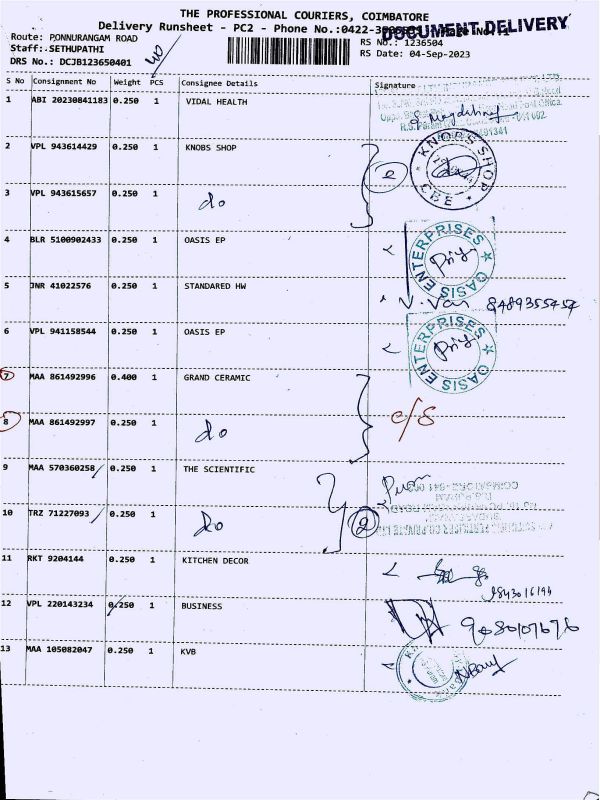 THE PROFESSIONAL COURIERS, COIMBATORE
Delivery Runsheet - PC2 - Phone No.:0422-
DOCUMENT DELIVERY
Route: PONNURANGAM ROAD
RS No.: 1236504
Staff: SETHUPATHI
RS Date: 04-Sep-2023
DRS No.: DCJB123650401
S No Consignment No Weight PCS Consignee Details Signature
1 ABI 20230841183 0.250 1 VIDAL HEALTH
2 VPL 943614429 0.250 1 KNOBS SHOP
KNOBS SHOP
CBE
2
3 VPL 943615657 0.250 1 do
4 BLR 5100902433 0.250 1 OASIS EP
OASIS ENTERPRISES
Priy
5 JNR 41022576 0.250 1 STANDARED HW
8489355454
6 VPL 941158544 0.250 1 OASIS EP
OASIS ENTERPRISES
Priy
7 MAA 861492996 0.400 1 GRAND CERAMIC
c/s
8 MAA 861492997 0.250 1 do
9 MAA 570360258 0.250 1 THE SCIENTIFIC
10 TRZ 71227093 0.250 1 do
2
11 RKT 9204144 0.250 1 KITCHEN DECOR
12 VPL 220143234 0.250 1 BUSINESS
9080107676
13 MAA 105082047 0.250 1 KVB